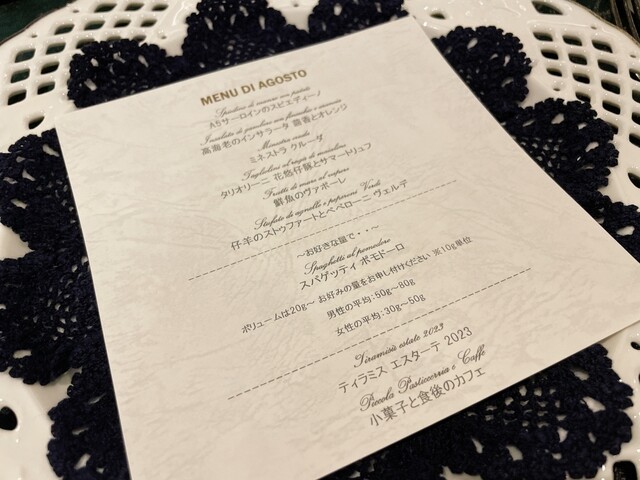 MENU DI AGOSTO
Spiedino di manzo con patate
A5サーロインのスピエディーノ
Insalata di gamberi con finocchi e arancia
高海老のインサラータ 茴香とオレンジ
Minestra cruda
ミネストラ クルーダ
Tagliolini al ragù di maialino
タリオリーニ 花悠仔豚とサマートリュフ
Frutti di mare al vapore
鮮魚のヴァポーレ
Stufato di agnello e peperoni Verdi
仔羊のストゥファートとペペローニ ヴェルデ
～お好きな量で・・～
Spaghetti al pomodoro
スパゲッティ ポモドーロ
ボリュームは20g～ お好みの量をお申し付けください ※10g単位
男性の平均：50g～80g
女性の平均：30g～50g
Tiramisù estate 2023
ティラミス エスターテ 2023
Piccola Pasticceria e Caffè
小菓子と食後のカフェ